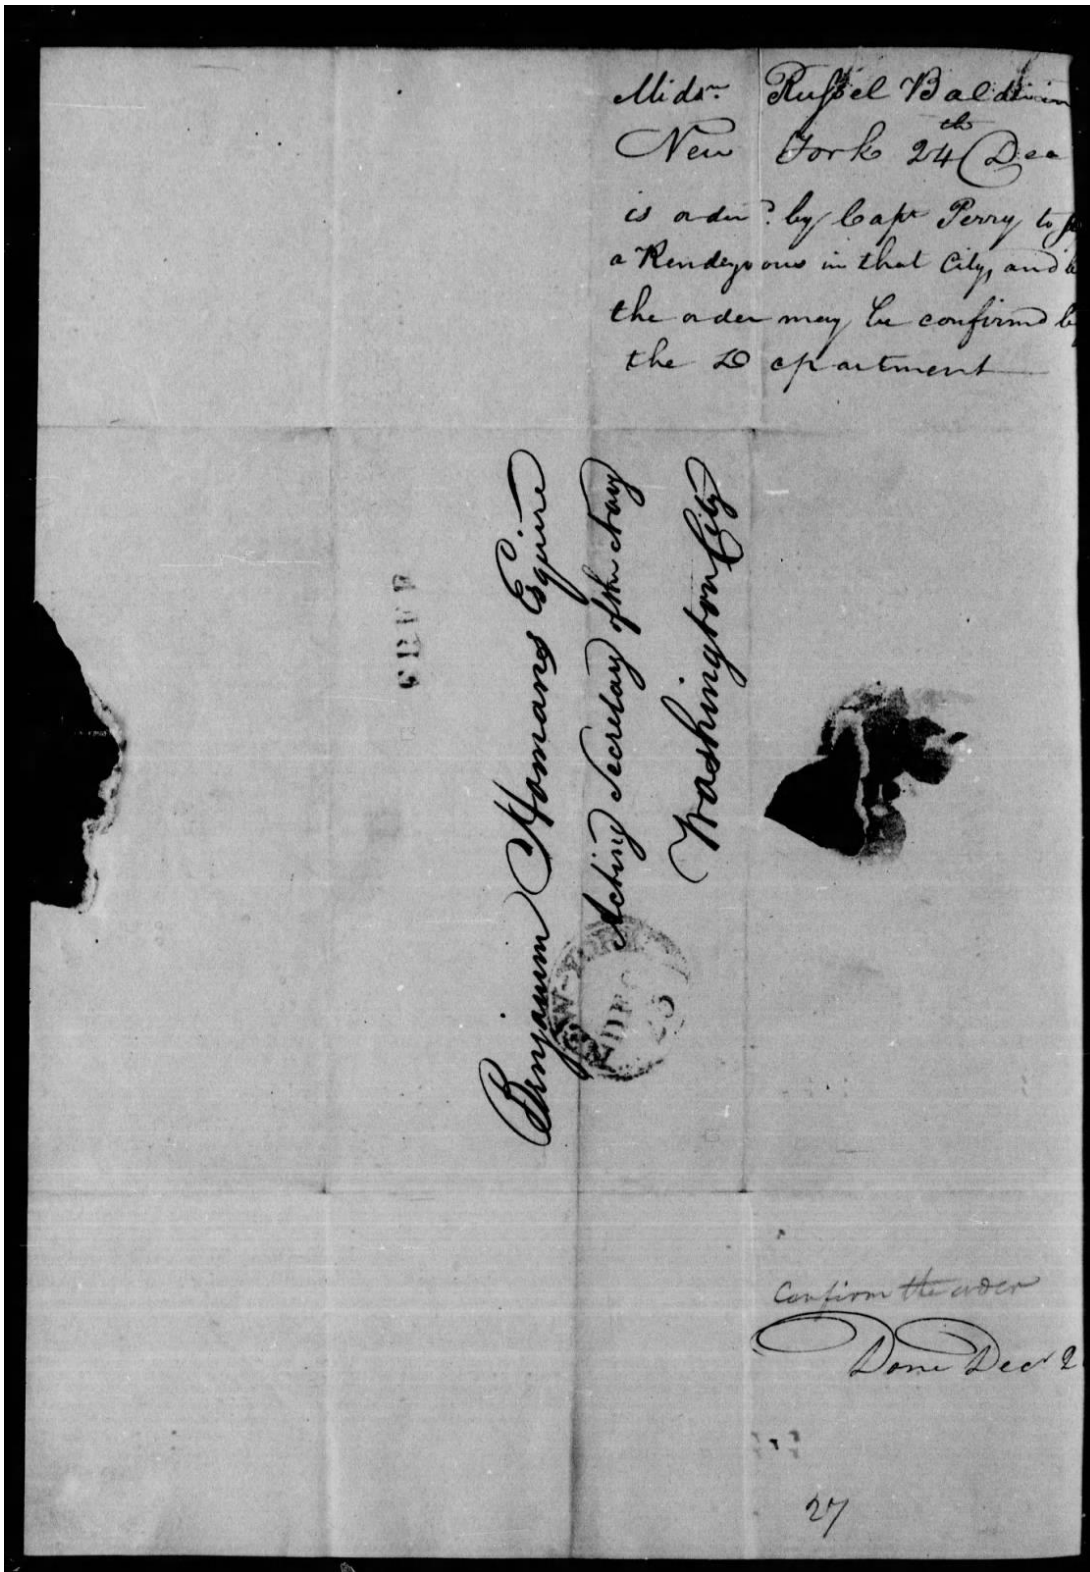 Midsn. Russel Baldwin
New York 24th Dec
is order'd. by Capt Perry to
a Rendezvous in that City, and
the order may be confirmd
the Department
Benjamin Homans Esquire
Acting Secretary of the Navy
Washington City
FREE
NEW-YORK
DEC
Confirm the order
Done Decr 2
27